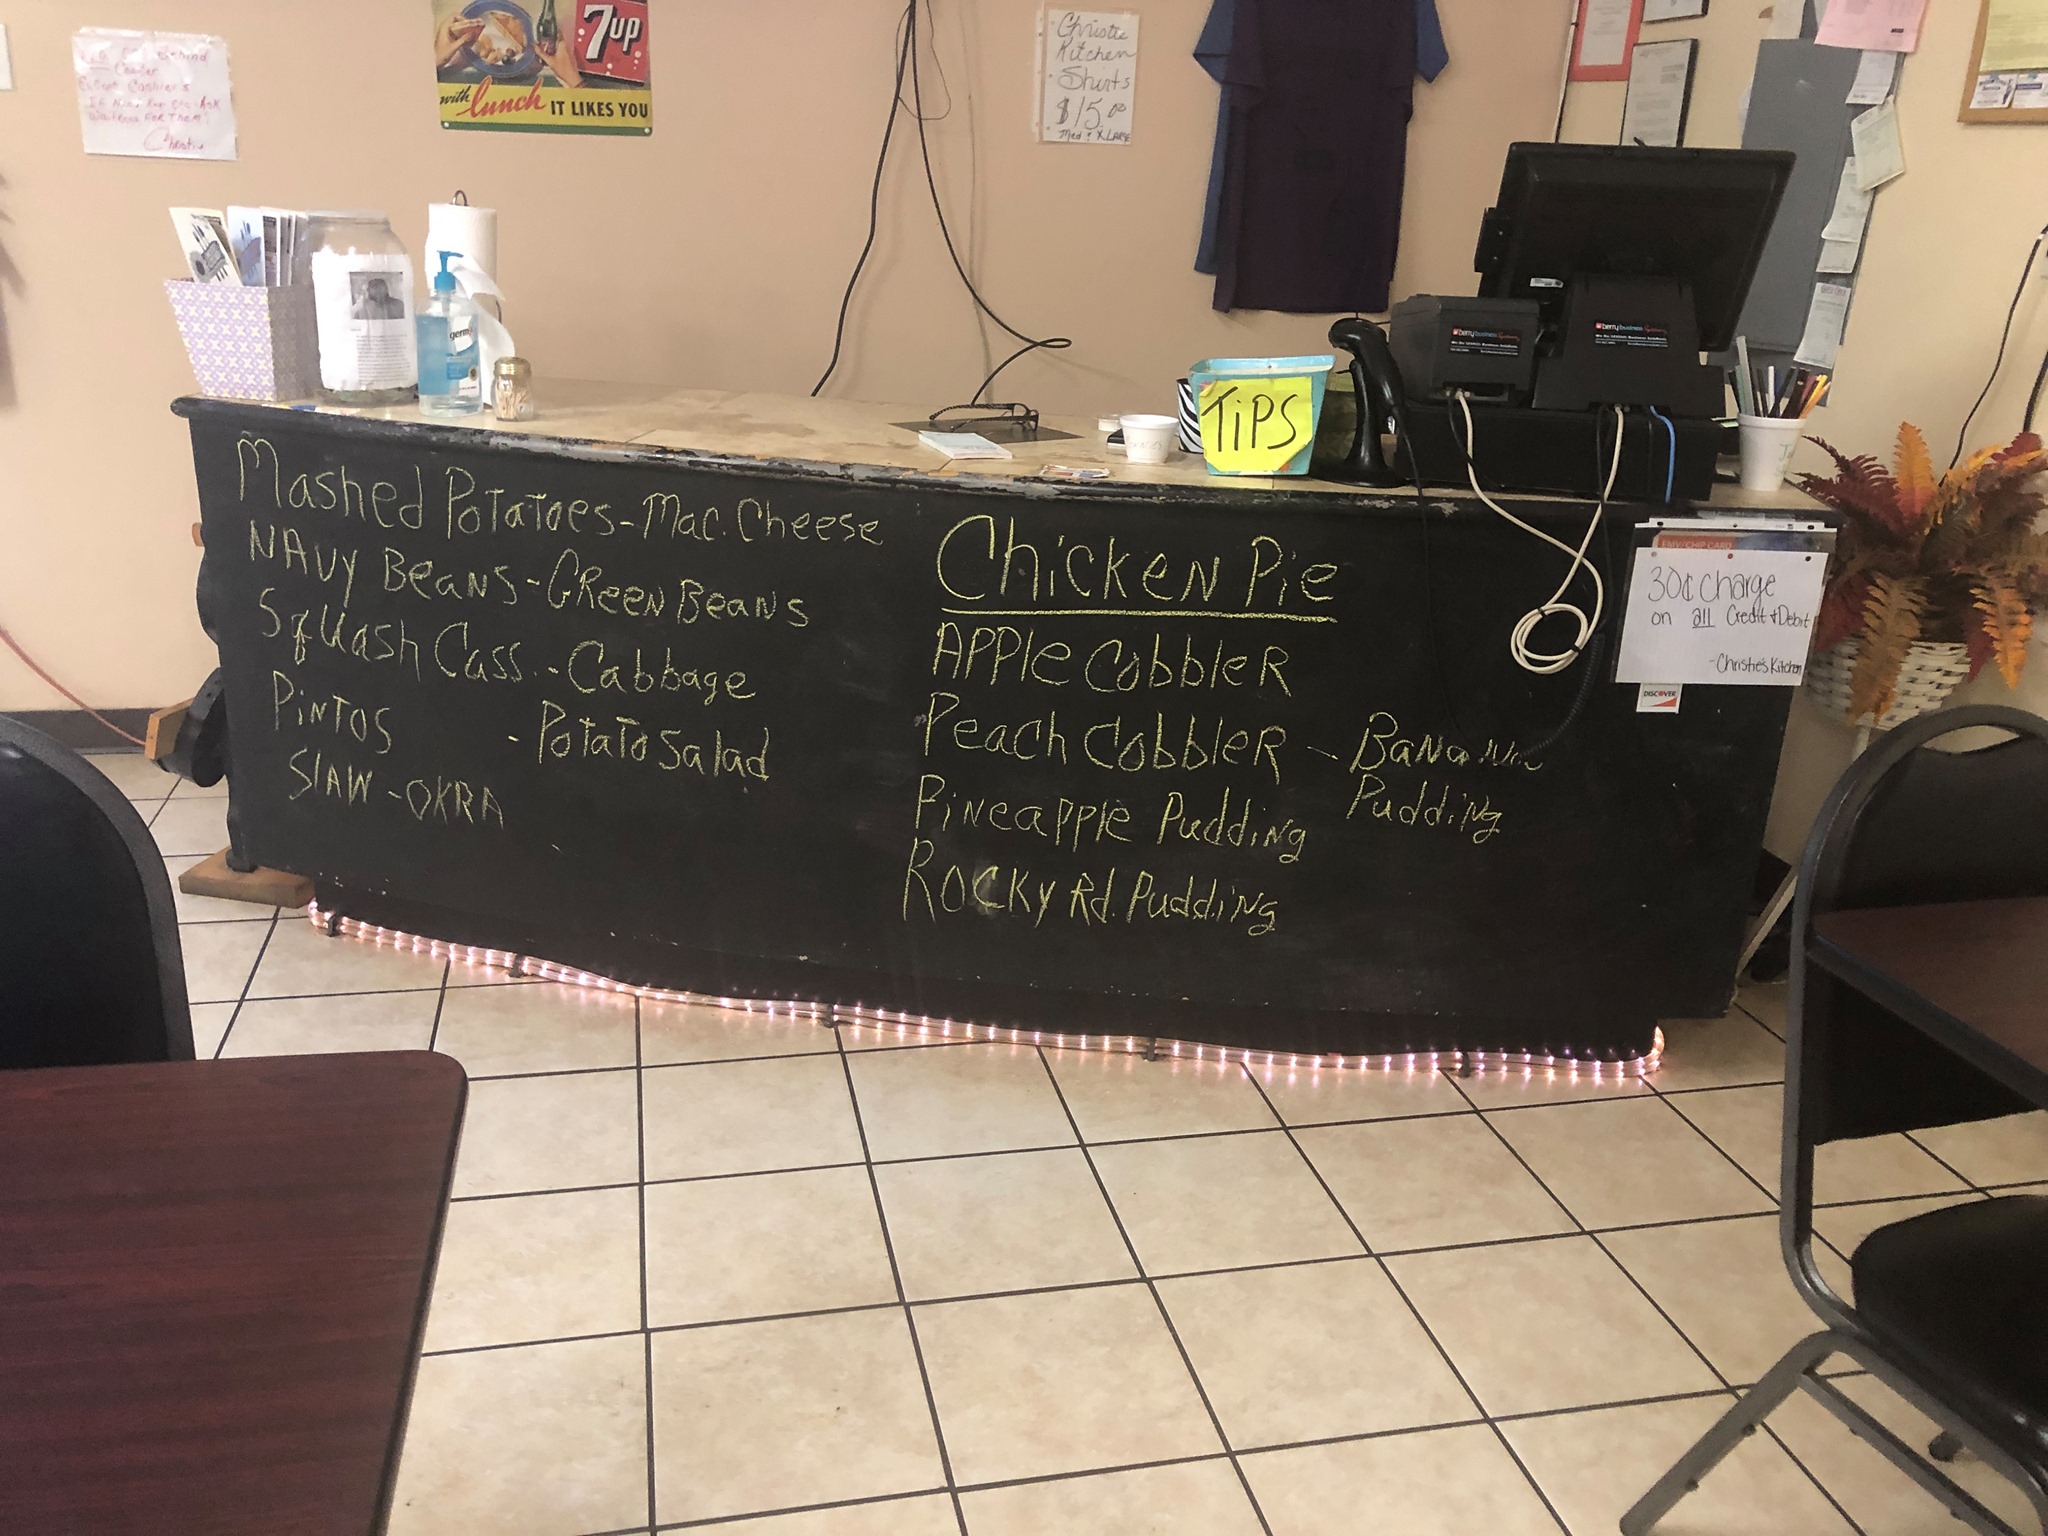 Behind
Counter
Except Cashier's
If Need
Waitress For Them!
Christie
7up
with lunch IT LIKES YOU
Christie
Kitchen
Shirts
$15.00
Med & X LARGE
germ
TiPS
berry business Systems
berry business Systems
Mashed Potatoes - Mac. Cheese
NAVY Beans - GReen Beans
Squash Cass. - Cabbage
PiNTOS - Potato Salad
SlAW - OKRA
Chicken Pie
APPle CobbleR
Peach CobbleR - Banana
Pudding
Pineapple Pudding
ROCKY Rd. Pudding
EMV/CHIP CARD
30¢ Charge
on all Credit & Debit
-Christie's Kitchen
DISCOVER